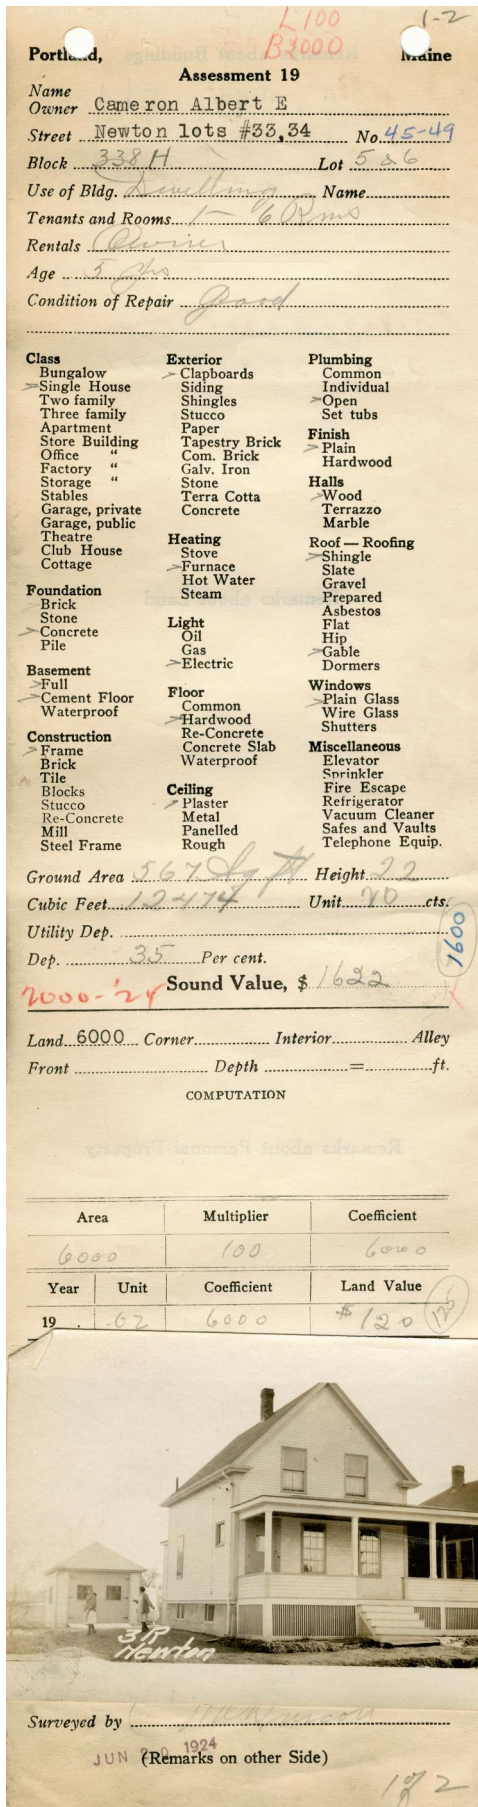 L100
1-2
B2000
Portland, Maine
Assessment 19
Name
Owner Cameron Albert E
Street Newton lots #33,34 No. 45-49
Block 338 H Lot 5 & 6
Use of Bldg. Dwelling Name
Tenants and Rooms 1- 6 Rms
Rentals Owner
Age 5 yrs
Condition of Repair good
Class
Bungalow
Single House
Two family
Three family
Apartment
Store Building
Office "
Factory "
Storage "
Stables
Garage, private
Garage, public
Theatre
Club House
Cottage
Foundation
Brick
Stone
Concrete
Pile
Basement
Full
Cement Floor
Waterproof
Construction
Frame
Brick
Tile
Blocks
Stucco
Re-Concrete
Mill
Steel Frame
Exterior
Clapboards
Siding
Shingles
Stucco
Paper
Tapestry Brick
Com. Brick
Galv. Iron
Stone
Terra Cotta
Concrete
Heating
Stove
Furnace
Hot Water
Steam
Light
Oil
Gas
Electric
Floor
Common
Hardwood
Re-Concrete
Concrete Slab
Waterproof
Ceiling
Plaster
Metal
Panelled
Rough
Plumbing
Common
Individual
Open
Set tubs
Finish
Plain
Hardwood
Halls
Wood
Terrazzo
Marble
Roof — Roofing
Shingle
Slate
Gravel
Prepared
Asbestos
Flat
Hip
Gable
Dormers
Windows
Plain Glass
Wire Glass
Shutters
Miscellaneous
Elevator
Sprinkler
Fire Escape
Refrigerator
Vacuum Cleaner
Safes and Vaults
Telephone Equip.
Ground Area 567 Sq ft Height 22
Cubic Feet 12474 Unit 20 cts.
Utility Dep.
Dep. 35 Per cent.
1600
Sound Value, $ 1622
2000-'24
Land 6000 Corner Interior Alley
Front Depth = ft.
COMPUTATION
Area Multiplier Coefficient
6000 100 6000
Year Unit Coefficient Land Value
19 .02 6000 $120 125-
3R
Newton
Surveyed by
JUN 20 1924
(Remarks on other Side)
1 of 2